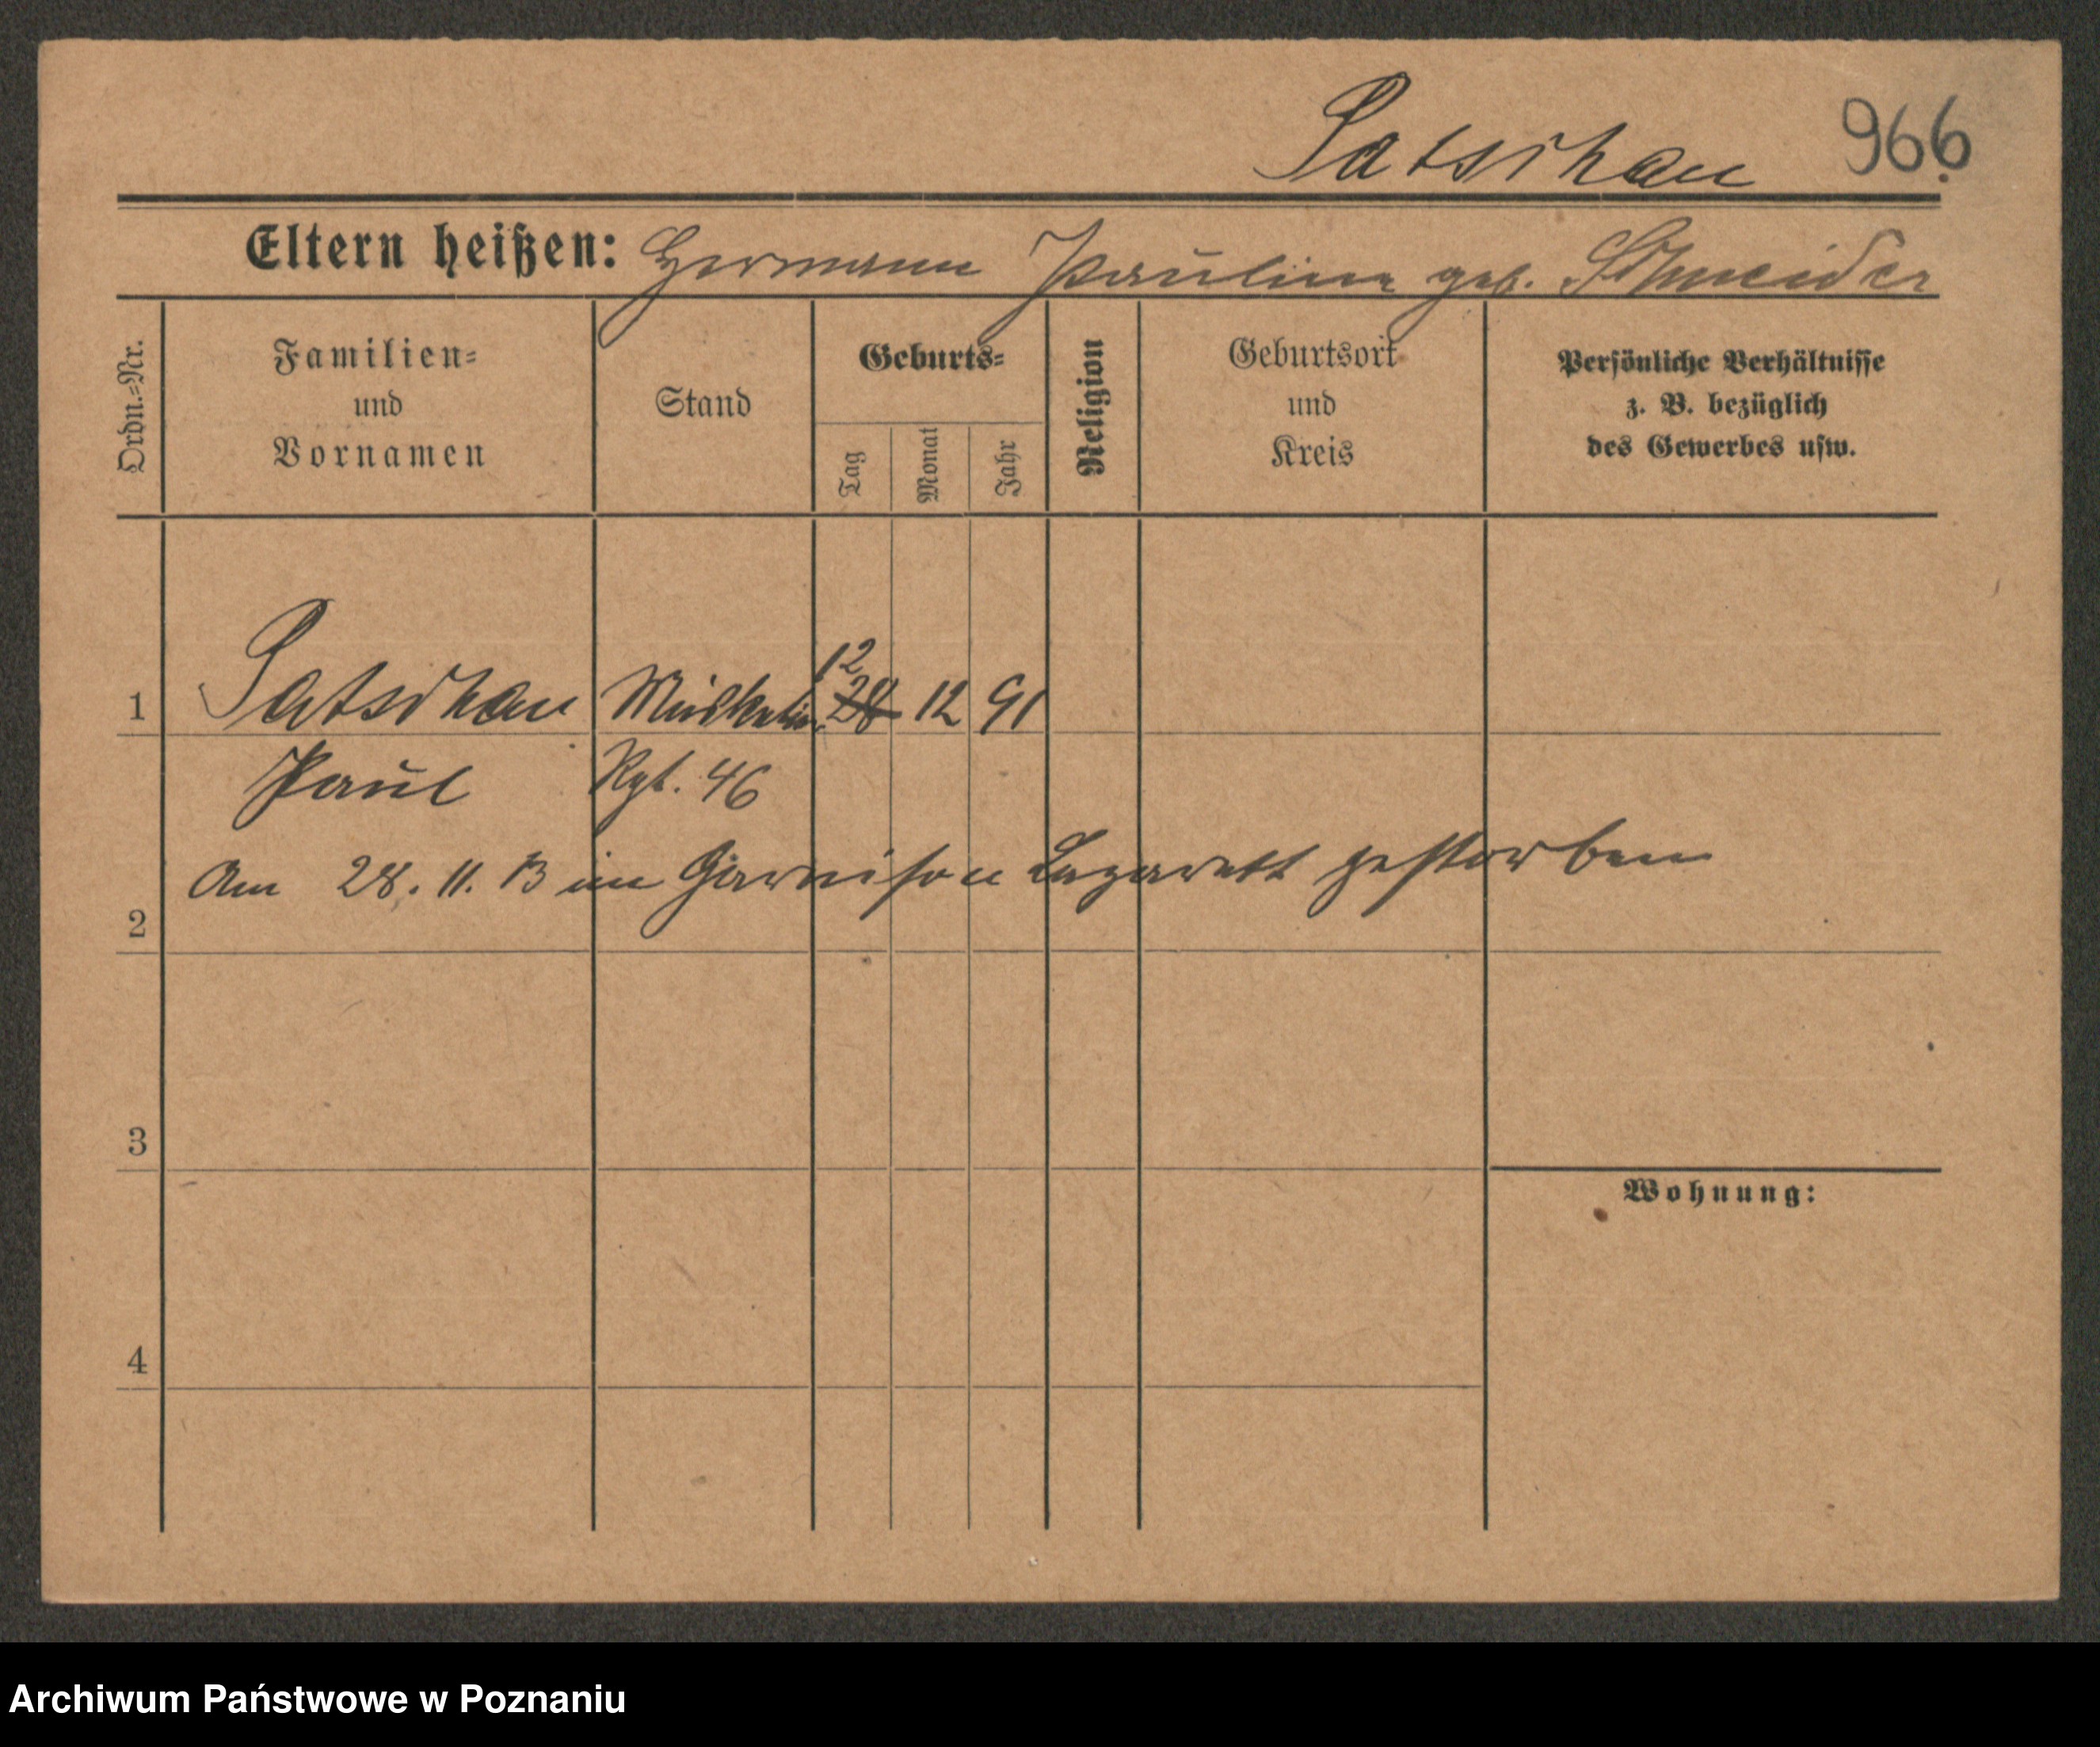 Patschan 966
Eltern heißen: Hermann Pauline geb. Schneider
Ordn.=Nr.
Familien=
und
Vornamen
Stand
Geburts=
Tag
Monat
Jahr
Religion
Geburtsort
und
Kreis
Persönliche Verhältnisse
z. B. bezüglich
des Gewerbes usw.
12
1 Patschan Musketier 28 12 91
Paul Rgt. 46
Am 28. 11. 13 im Garnison Lazarett gestorben
2
3
Wohnung:
4
Archiwum Państwowe w Poznaniu